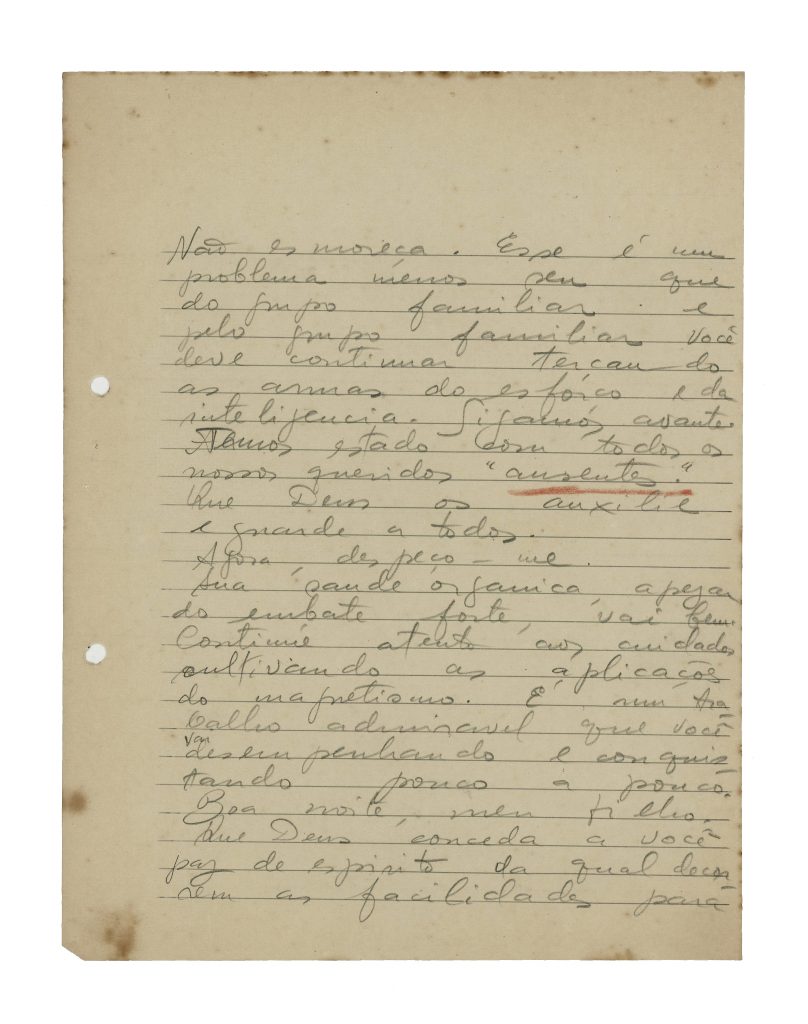 Não esmoreça. Esse é um
problema menos seu que
do grupo familiar e
pelo grupo familiar você
deve continuar terçando
as armas do esfôrço e da
inteligencia. Sigamos avante.
Temos estado com todos os
nossos queridos "ausentes."
Que Deus os auxilie
e guarde a todos.
Agora, despeço-me.
Sua saude órganica, apezar
do embate forte, vai bem.
Continúe atento aos cuidados
cultivando as aplicações
do magnetismo. É um tra-
balho admiravel que você
vai
desempenhando e conquis-
tando pouco a pouco.
Boa noite, meu filho.
Que Deus conceda a você
paz de espirito da qual decor-
rem as facilidades para